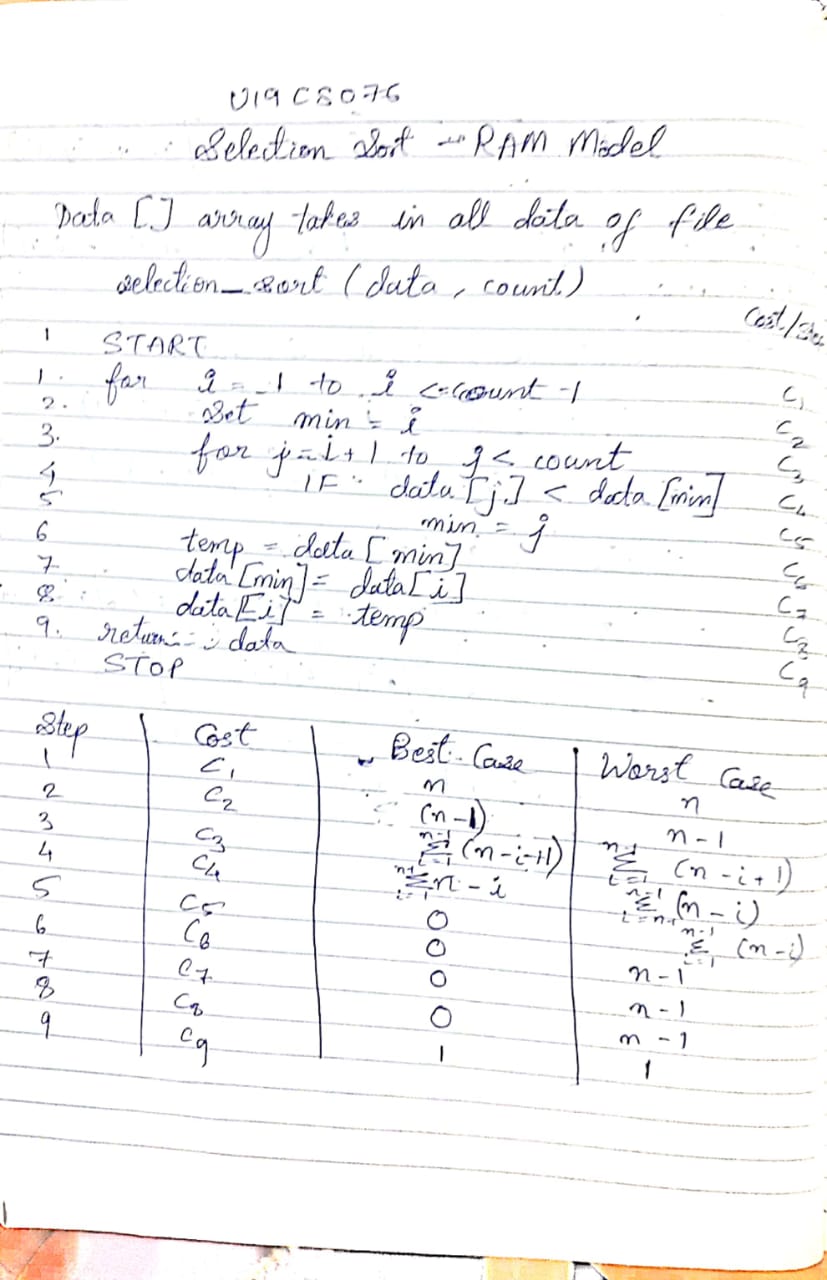 U19CS076
Selection Sort - RAM Model
Data [] array takes in all data of file
selection_sort (data, count)
Cost/
1 START
1. for i = 1 to i < count -1 C1
2. Set min = i C2
3. for j=i+1 to j < count C3
4 IF data [j] < data [min] C4
5 min = j C5
6 temp = data [min] C6
7 data [min] = data[i] C7
8. data[i] = temp C8
9. return data C9
STOP
Step Cost Best Case Worst Case
1 C1 n n
2 C2 (n-1) n-1
3 C3 n-1 Σ i=1 (n-i+1) n-1 Σ i=1 (n-i+1)
4 C4 n-1 Σ i=1 n-i n-1 Σ (n-i)
5 C5 0 n-1 Σ i=1 (n-i)
6 C6 0 n-1
7 C7 0 n-1
8 C8 0 n-1
9 C9 1 1